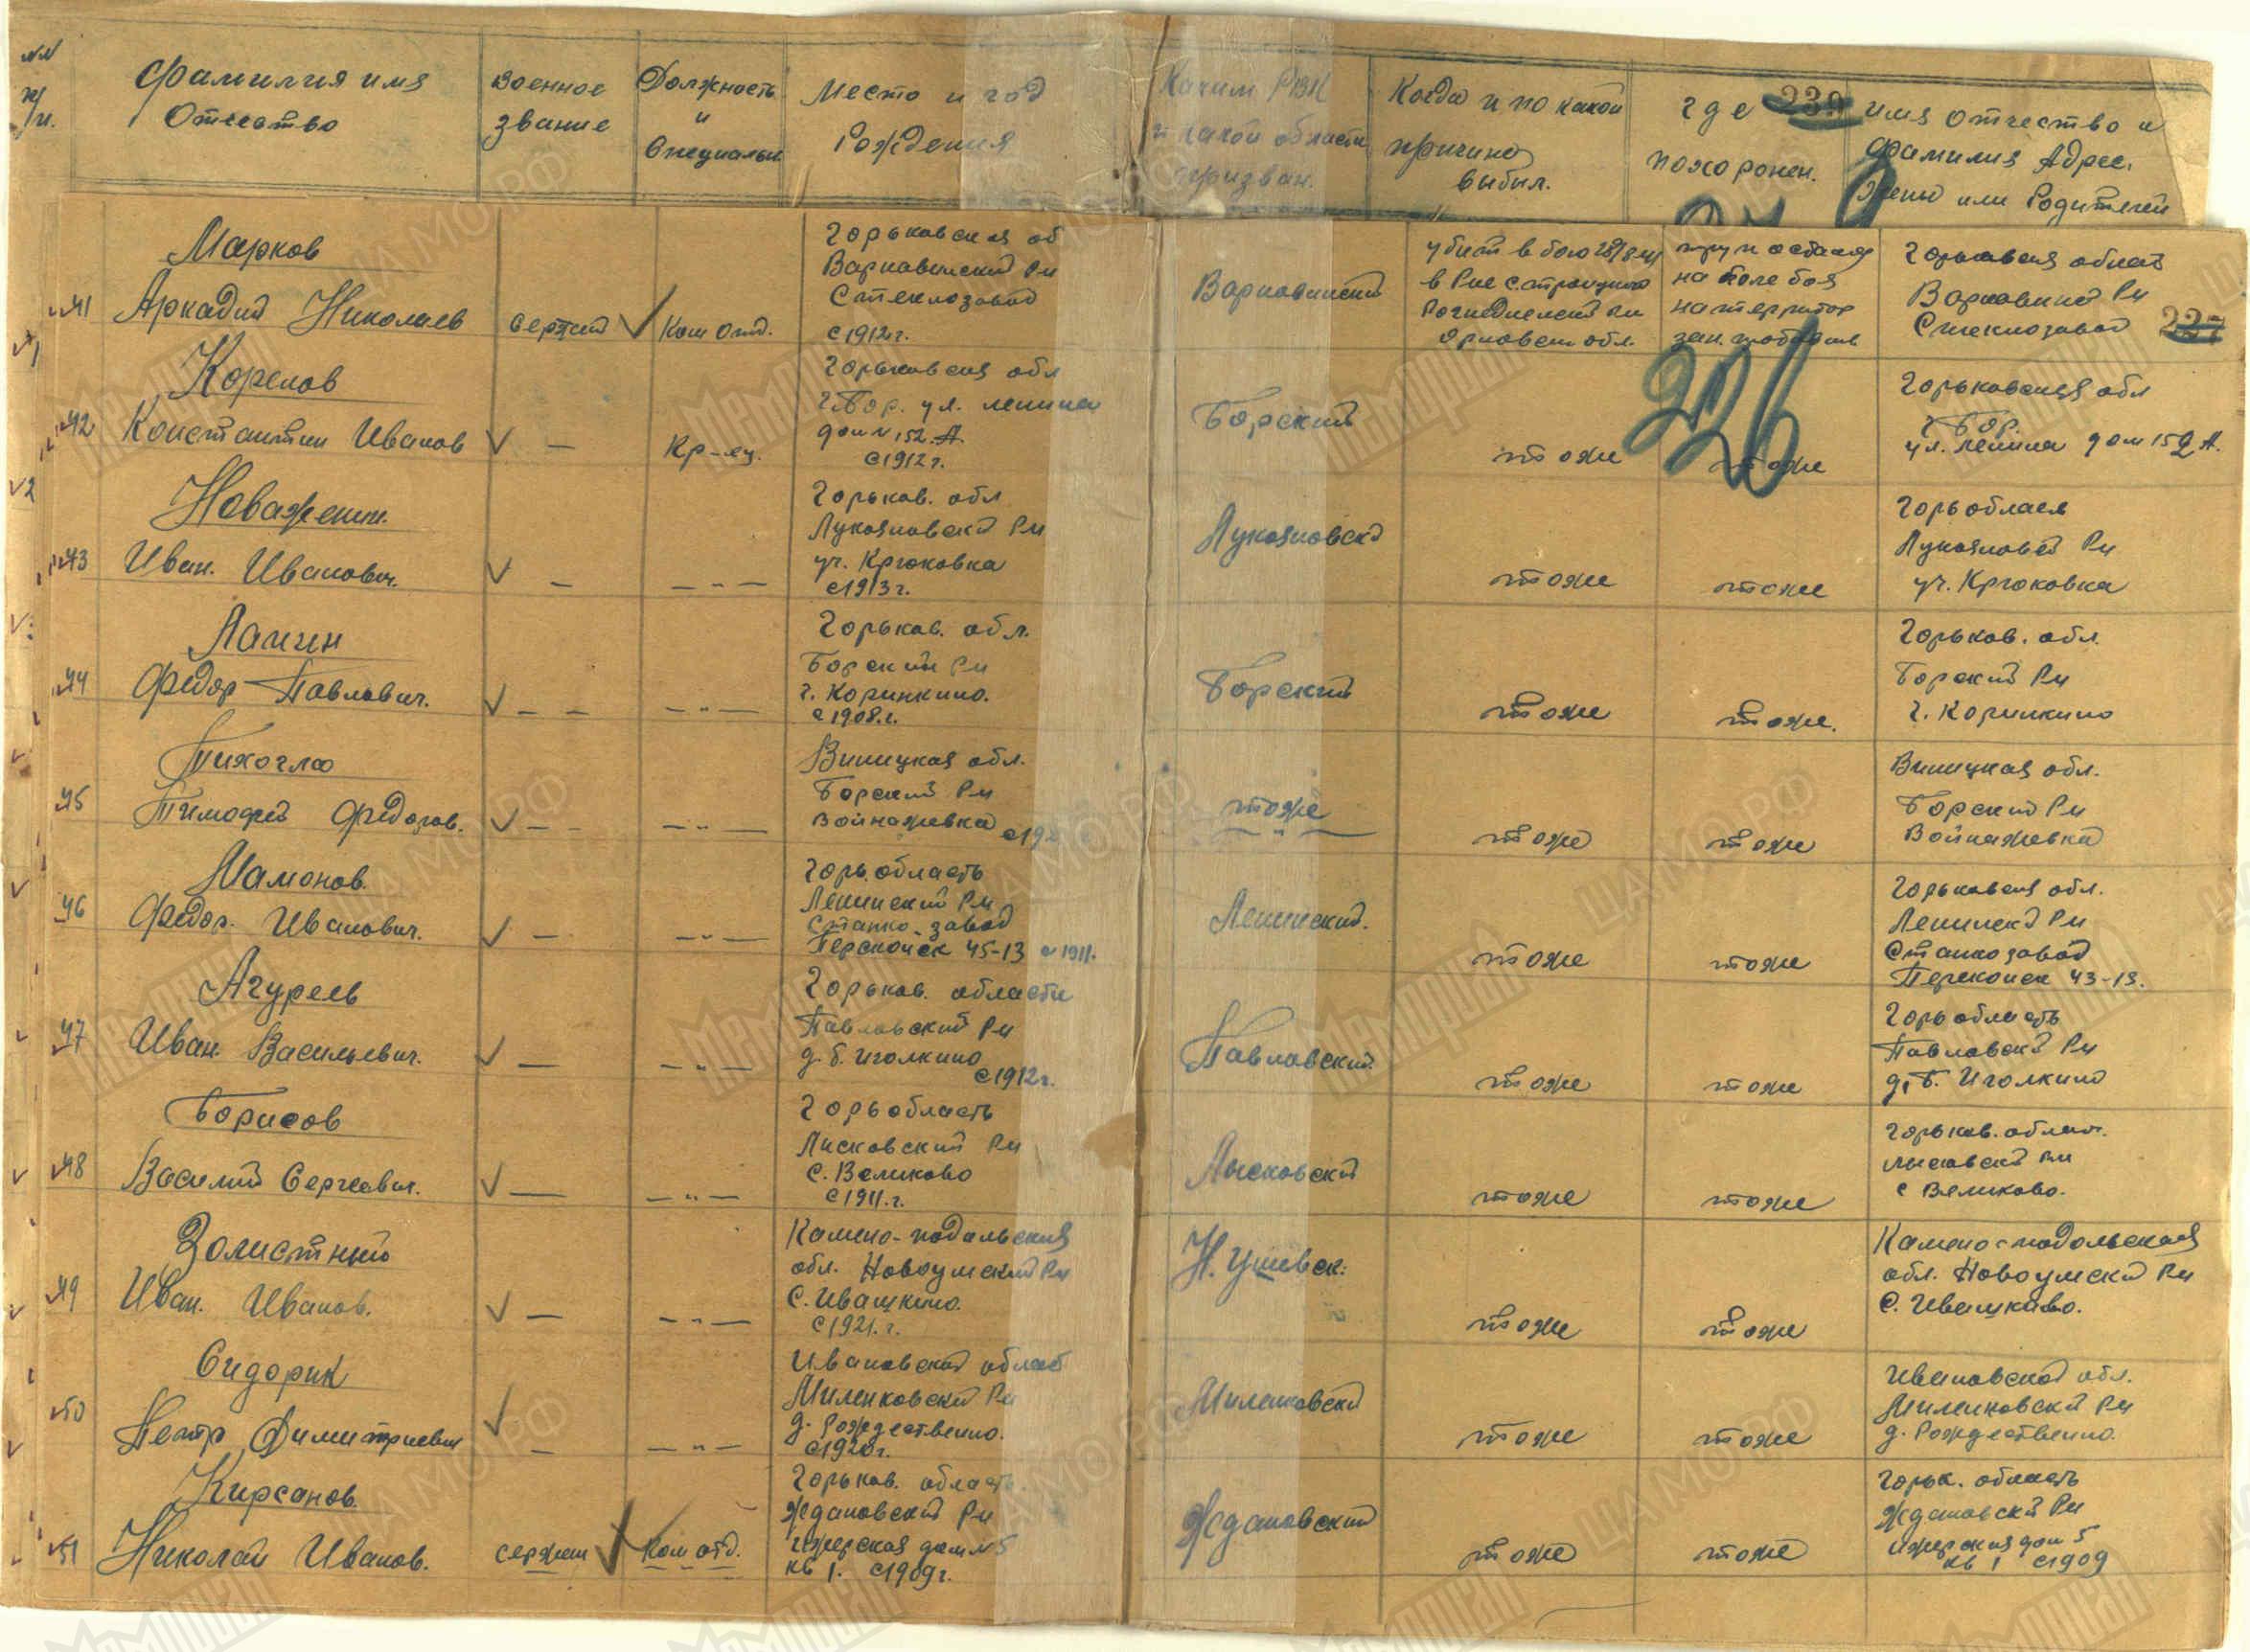 NN п/п.
Фамилия имя Отчество
Военное звание
Должность и Специальн
Место и год Рождения
Каким РВК и какой области призван.
Когда и по какой причине выбыл.
где похоронен.
имя отчество и фамилия Адрес. жены или Родителей
239
227
226
41
Марков
Аркадий Николаев
сержант
Ком отд.
Горьковская об
Варнавинский Рн
Стеклозавод
с 1912 г.
Варнавинский
убит в бою
труп остался
на поле боя
на территор
Горьковская област
Варнавинс Рн
Стеклозавод
42
Корелов
Константин Иванов
—
Кр-ец.
Горьковская обл
г. Бор. ул. Ленина
дом N 152 А
с 1912 г.
Борский
тоже
тоже
Горьковская обл
г. Бор.
ул. Ленина дом 152 А.
43
Новаженин.
Иван. Иванович.
—
— " —
Горьков. обл
Лукояновски Рн
уч. Крюковка
с 1913 г.
Лукояновск
тоже
тоже
Горь облася
Лукояновс Рн
уч. Крюковка
44
Лапин
Федор Павлович.
— —
— " —
Горьков. обл.
Борский Рн
с 1908. г.
Борский
тоже
тоже.
Горьков. обл.
Борский Рн
45
Тихоглаз
Тимофей Федоров.
— —
— " —
Виницкая обл.
Борский Рн
Войнажевка с 192
тоже
— " —
тоже
тоже
Виницкая обл.
Борский Рн
Войнажевка
46
Мамонов.
Федор. Иванович.
—
— " —
Горь. область
Ленинский Рн
Станко-завод
45-13 с 1911.
Ленинский.
тоже
тоже
Горьковская обл.
Ленинск Рн
Станкозавод
43-13.
47
Агуреев
Иван. Васильевич.
—
— " —
Горьков. области
Павловский Рн
д. б. Иголкино
с 1912 г.
Павловский
тоже
тоже
Горь область
Павловск Рн
д. Б. Иголкино
48
Борисов
Василий Сергеевич.
—
— " —
Горь область
Лисковский Рн
с. Великово
с 1911. г.
Лысковский
тоже
тоже
Горьков. област.
Лысковск Рн
с Великово.
49
Золистный
Иван. Иванов.
—
— " —
Камено-подальская
обл. Новоушский Рн
с. Ивашкино.
с 1921. г.
Н. Ушевск.
тоже
тоже
Камено-подольская
обл. Новоушск Рн
с. Ивашково.
50
Сидорик
Петр Димитриевич
—
— " —
Ивановской област
Миленковский Рн
д. Рождественно.
с 1920 г.
Миленковский
тоже
тоже
Ивановской обл.
Миленковск Рн
д. Рождественно.
51
Кирсанов.
Николай Иванов.
сержант
Ком отд.
Горьков. область.
Ждановский Рн
Ижерская дом N 5
кв 1. с 1909 г.
Ждановский
тоже
тоже
Горьк. область
Ждановск Рн
Ижерская дом 5
кв 1 с 1909